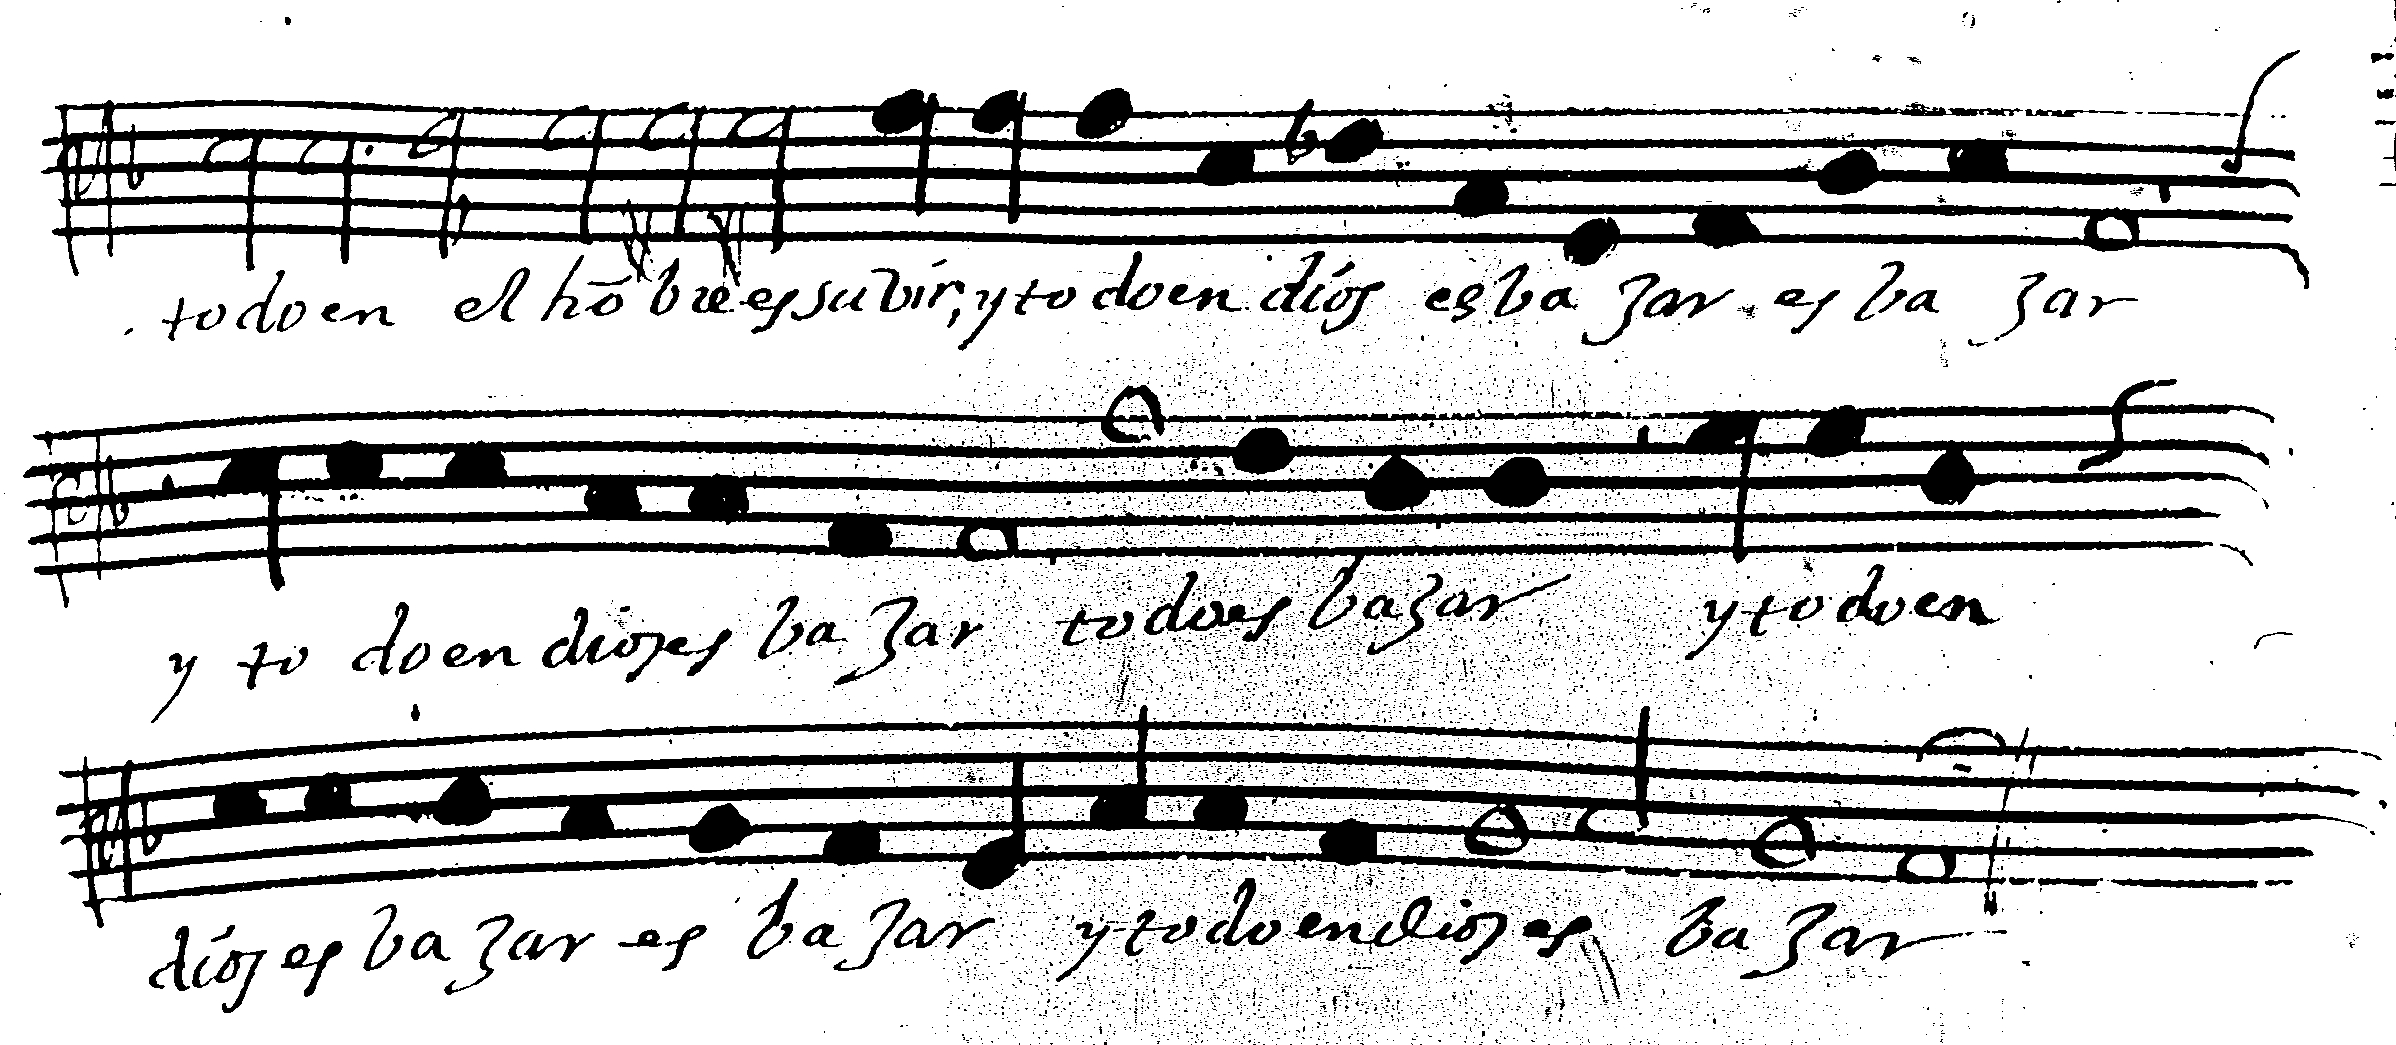 todo en el hõbre es subir, y todo en dios es bajar es bajar
y todo en dios es bajar todo es bajar y todo en
dios es bajar es bajar y todo en dios es bajar